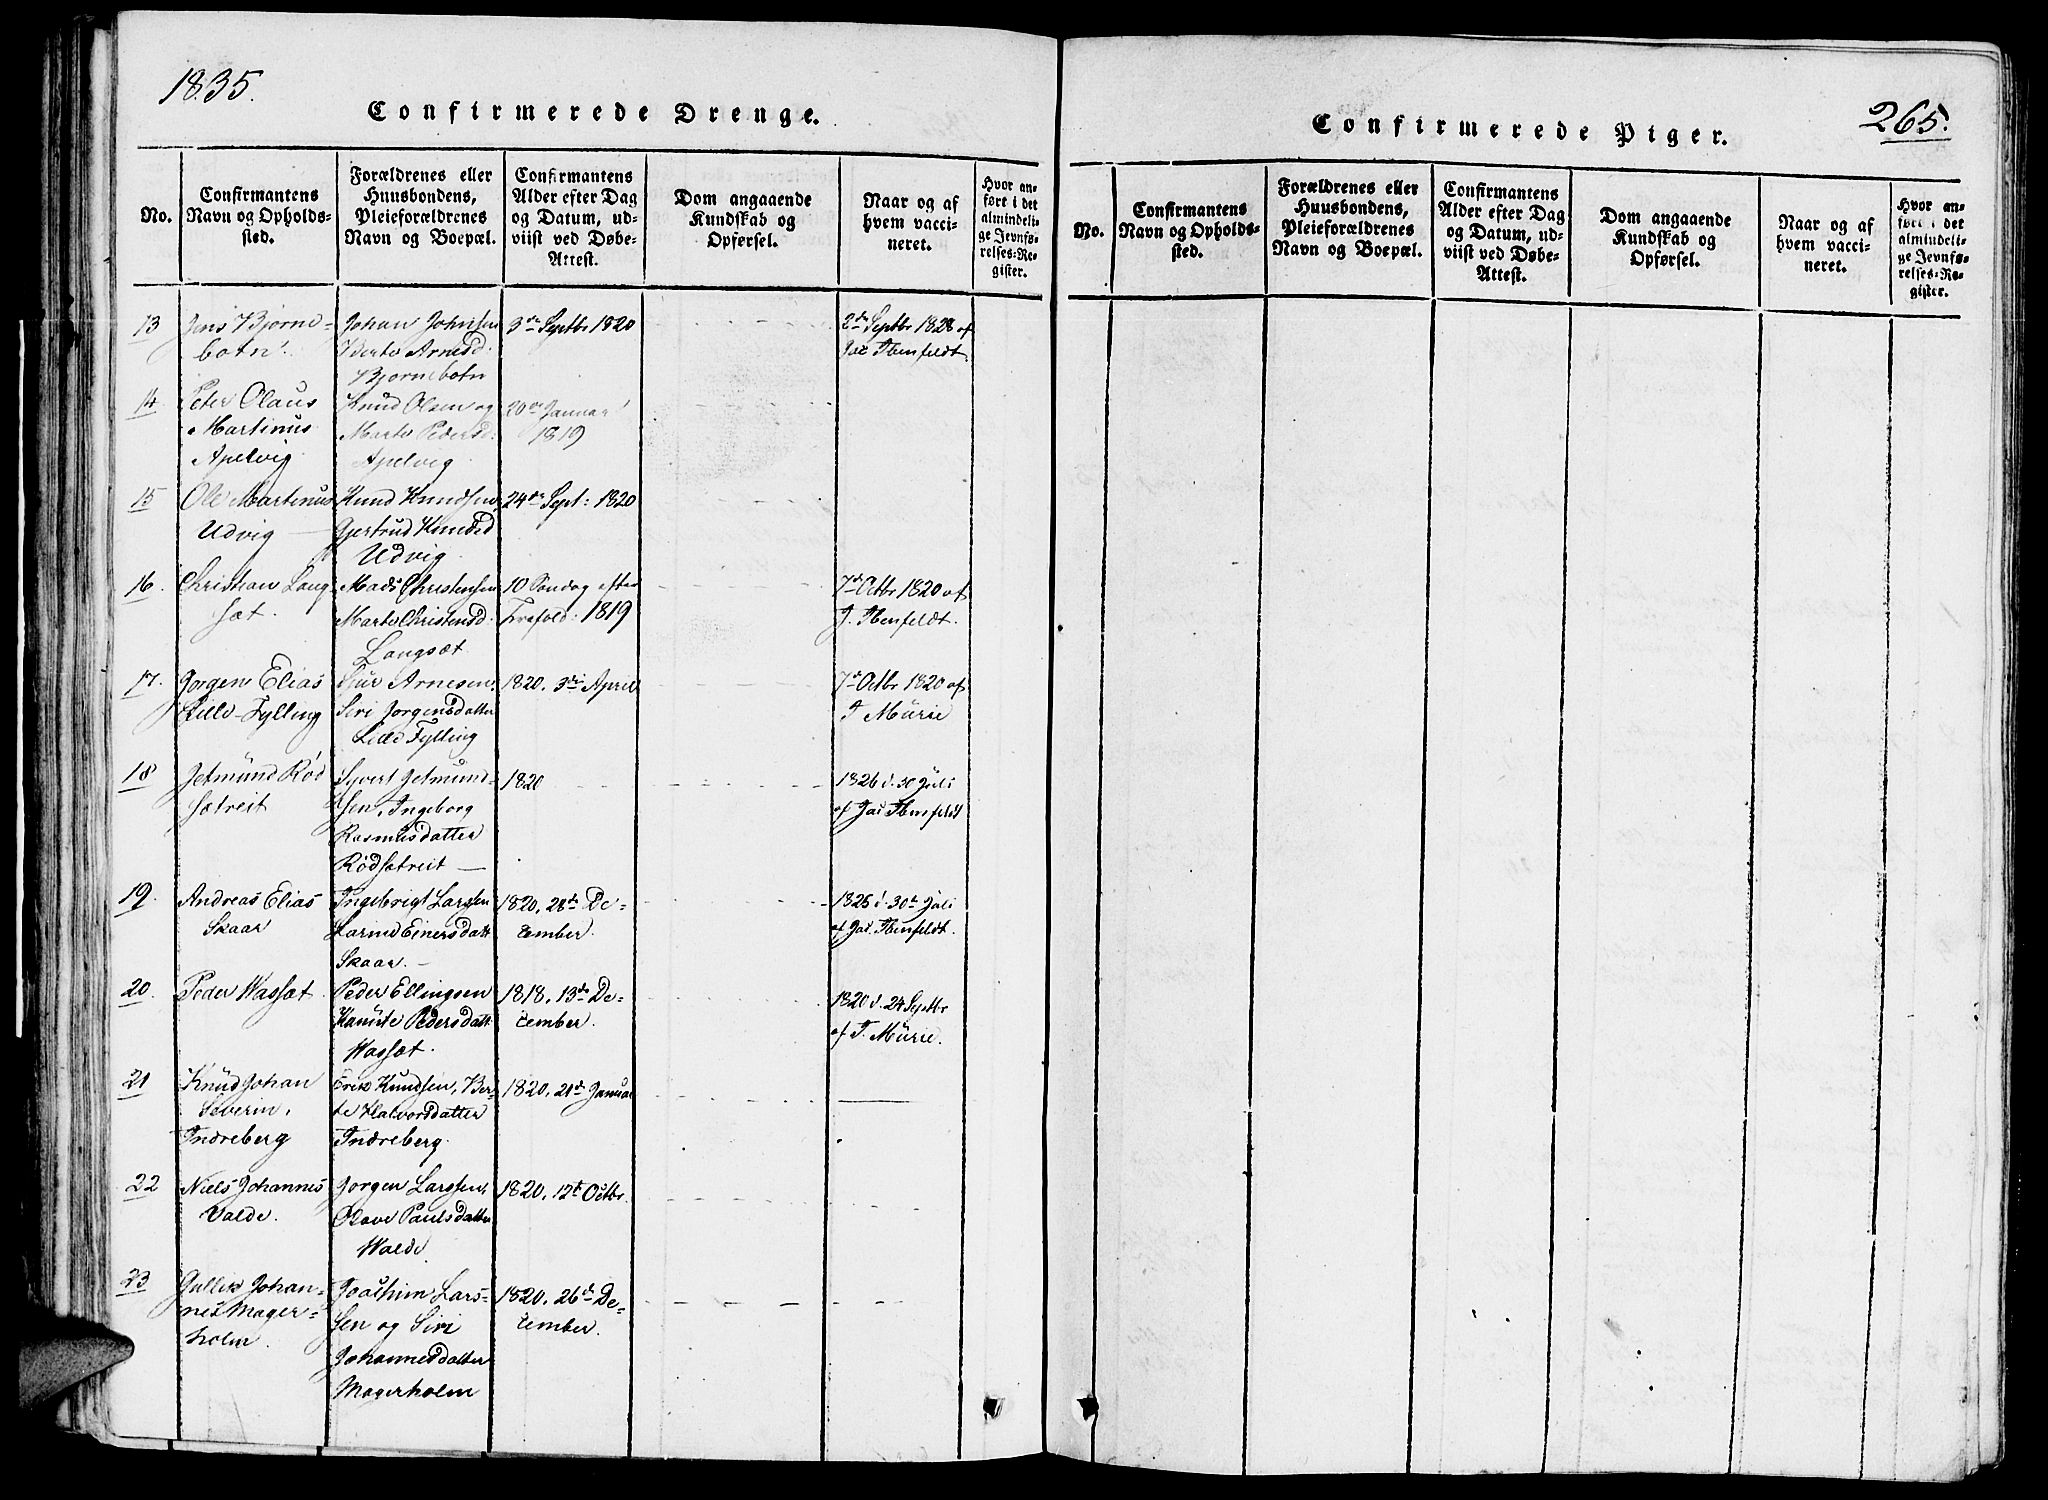 1835.
Confirmerede Drenge.
No.
Confirmantens
Navn og Opholds-
sted.
Forældrenes eller
Huusbondens,
Pleieforældrenes
Navn og Boepæl.
Confirmantens
Alder efter Dag
og Datum, ud-
viist ved Døbe-
Attest.
Dom angaaende
Kundskab og
Opførsel.
Naar og af
hvem vacci-
neret.
Hvor an-
ført i det
almindeli-
ge Jevnfø-
relses-Re-
gister.
13
Jens Bjørne-
botn.
Johan Johnsen
Berte Arnesd.
Bjørnebotn
3de Septbr 1820
2de Septbr 1828 af
Jac Ibenfeldt
14
Peter Olaus
Martinus
Apelvig
Knud Olsen og
Marte Pedersd:
Apelvig
20de Januar
1819
15
Ole Martinus
Udvig
Knud Knudsen
Gjertrud Knudsd
Udvig
24de Sept: 1820
16.
Christian Lang-
sæt.
Mads Christensen
Marte Christensd.
Langsæt
10 Søndag efter
Trefold: 1819
7de Octbr 1820 af
J. Ibenfeldt.
17.
Jørgen Elias
Lille-Fylling
Siur Arnesen,
Siri Jørgensdatter
Lille Fylling
1820, 3de April
7de Octbr 1820 af
T Mürie
18
Jetmünd Rød
sætreit
Syvert Jetmund-
sen, Ingeborg
Rasmusdatter
Rødsetreit
1820
1826 d. 30 Juli
af Jac Ibenfeldt
19.
Andreas Elias
Skaar
Ingebrigt Larssen
Karine Einersdatt
Skaar.
1820, 28de De-
cember.
1826 d. 30te Juli
af Jac. Ibenfeldt.
20.
Peder Wassæt
Peder Ellingsen
Kanüte Pedersdatt
Wassæt.
1818, 13de De-
cember.
1820 d. 24 Septbr
af T. Mürie.
21
Knüd Johan
Severin,
Indreberg
Erik Knudsen, Ber-
te Halvorsdatter
Indreberg.
1820, 21de Januar
22
Niels Johannes
Valde.
Jørgen Larssen,
Olave Paulsdatter
Walde
1820, 12te Octbr.
23
Gullik Johan-
nes Mager-
holm.
Joachim Lars-
sen og Siri
Johannesdatter
Magerholm
1820, 26de De-
cember.
265.
Confirmerede Piger.
No.
Confirmantens
Navn og Opholds-
sted.
Forældrenes eller
Huusbondens,
Pleieforældrenes
Navn og Boepæl.
Confirmantens
Alder efter Dag
og Datum, ud-
viist ved Døbe-
Attest.
Dom angaaende
Kundskab og
Opførsel.
Naar og af
hvem vacci-
neret.
Hvor an-
ført i det
almindeli-
ge Jevnfø-
relses-Re-
gister.